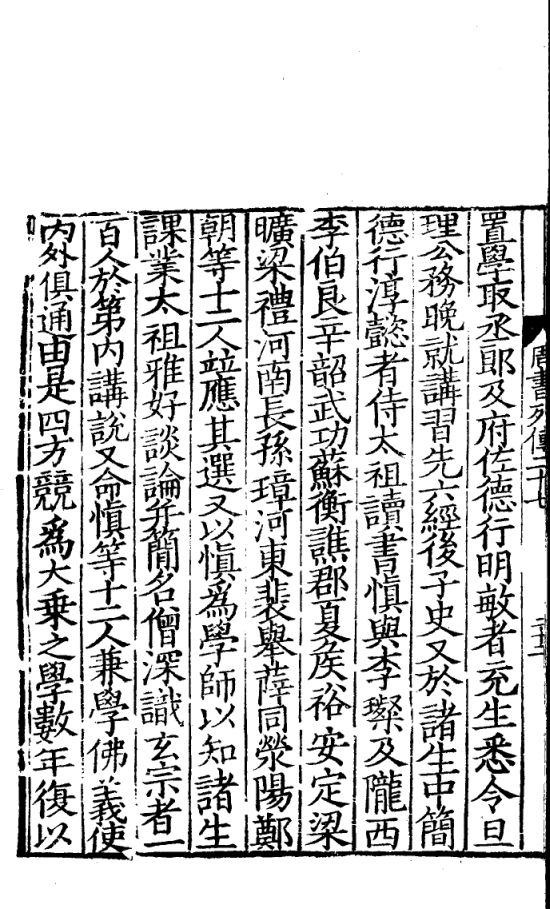 周書列傳二十七
置學取丞郎及府佐德行明敏者充生悉令旦
理公務晚就講習先六經後子史又於諸生中簡
德行淳懿者侍太祖讀書慎與李璨及隴西
李伯良辛韶武功蘇衡譙郡夏矦裕安定梁
曠梁禮河南長孫璋河東裴舉薛同滎陽鄭
朝等十二人竝應其選又以慎為學師以知諸生
課業太祖雅好談論并簡名僧深識玄宗者一
百人於第內講說又命慎等十二人兼學佛義使
內外俱通由是四方競為大乗之學數年復以